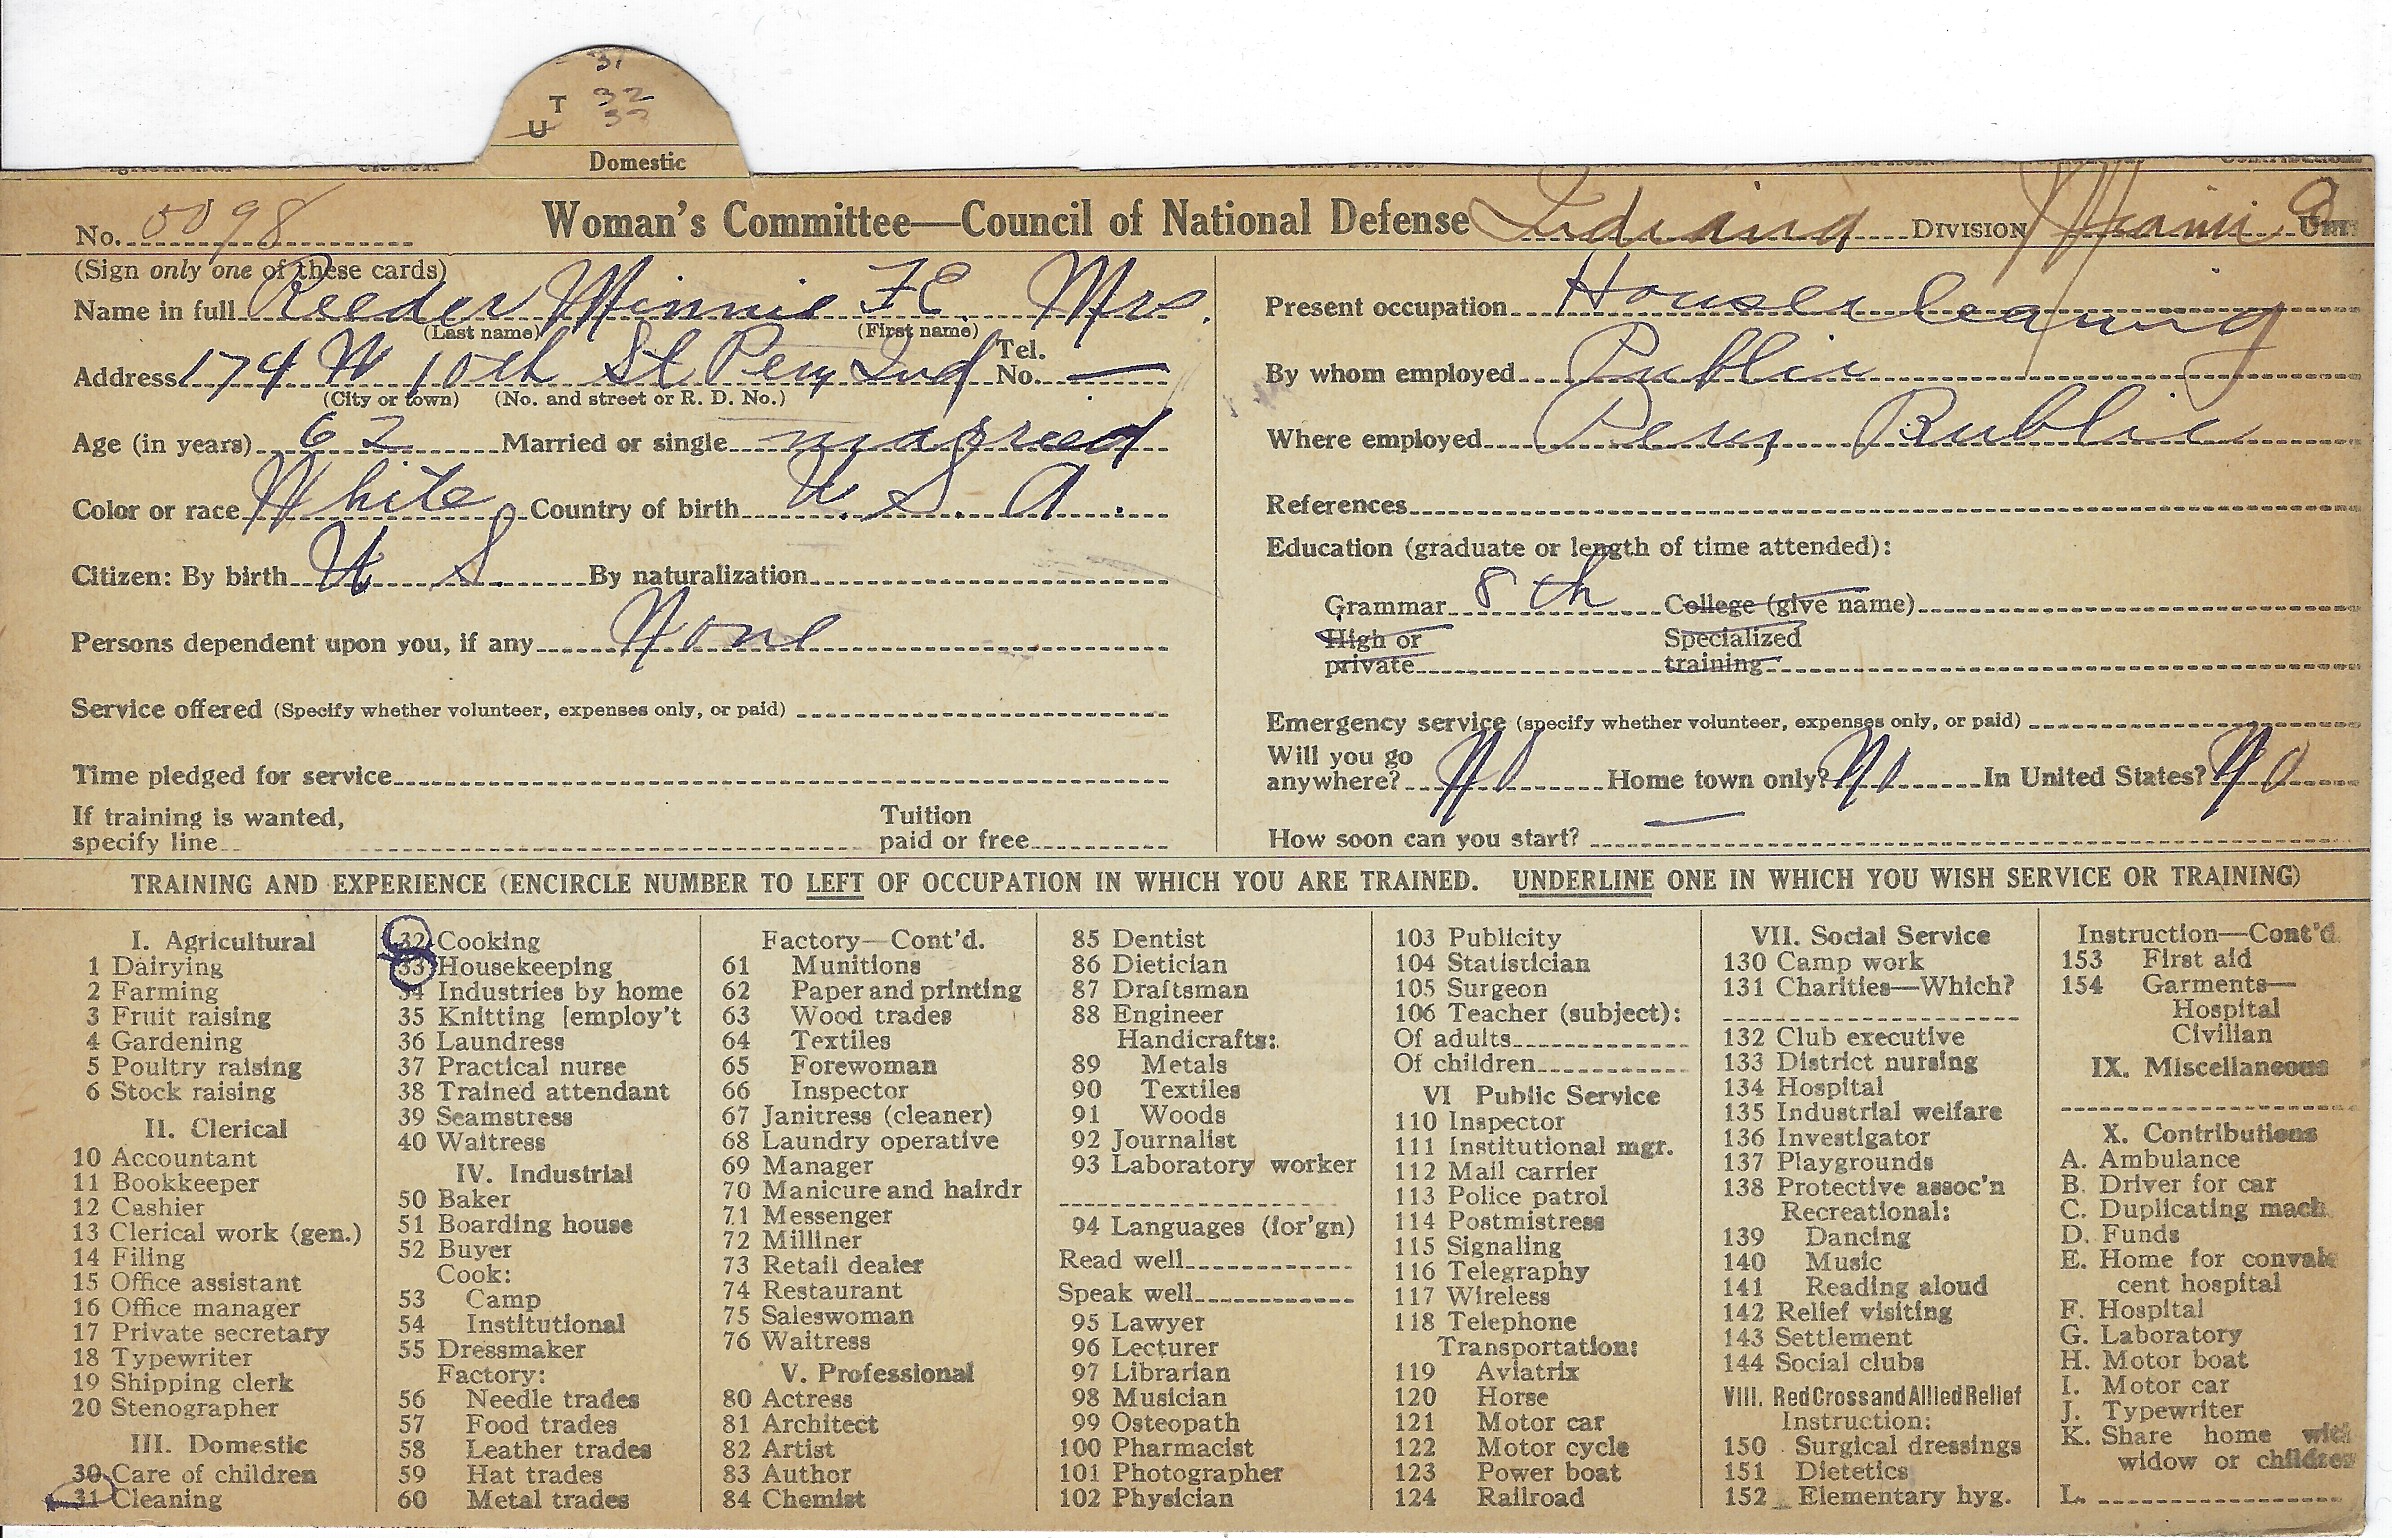 31
T 32
U 33
Domestic
No. 5098 Woman's Committee—Council of National Defense Indiana DIVISION Miami Co UNIT
(Sign only one of these cards)
Name in full Reeder Minnie F.E. Mrs.
(Last name) (First name)
Address 174 W 10th St Peru Ind Tel. No. —
(City or town) (No. and street or R. D. No.)
Age (in years) 62 Married or single married
Color or race White Country of birth U. S. A.
Citizen: By birth U S. By naturalization
Persons dependent upon you, if any None
Service offered (Specify whether volunteer, expenses only, or paid)
Time pledged for service
If training is wanted, specify line Tuition paid or free
Present occupation Housecleaning
By whom employed Public
Where employed Peru Public
References
Education (graduate or length of time attended):
Grammar 8th College (give name)
High or private Specialized training
Emergency service (specify whether volunteer, expenses only, or paid)
Will you go anywhere? No Home town only? No In United States? No
How soon can you start? —
TRAINING AND EXPERIENCE (ENCIRCLE NUMBER TO LEFT OF OCCUPATION IN WHICH YOU ARE TRAINED. UNDERLINE ONE IN WHICH YOU WISH SERVICE OR TRAINING)
I. Agricultural
1 Dairying
2 Farming
3 Fruit raising
4 Gardening
5 Poultry raising
6 Stock raising
II. Clerical
10 Accountant
11 Bookkeeper
12 Cashier
13 Clerical work (gen.)
14 Filing
15 Office assistant
16 Office manager
17 Private secretary
18 Typewriter
19 Shipping clerk
20 Stenographer
III. Domestic
30 Care of children
31 Cleaning
32 Cooking
33 Housekeeping
34 Industries by home
35 Knitting [employ't
36 Laundress
37 Practical nurse
38 Trained attendant
39 Seamstress
40 Waitress
IV. Industrial
50 Baker
51 Boarding house
52 Buyer
Cook:
53 Camp
54 Institutional
55 Dressmaker
Factory:
56 Needle trades
57 Food trades
58 Leather trades
59 Hat trades
60 Metal trades
Factory—Cont'd.
61 Munitions
62 Paper and printing
63 Wood trades
64 Textiles
65 Forewoman
66 Inspector
67 Janitress (cleaner)
68 Laundry operative
69 Manager
70 Manicure and hairdr
71 Messenger
72 Milliner
73 Retail dealer
74 Restaurant
75 Saleswoman
76 Waitress
V. Professional
80 Actress
81 Architect
82 Artist
83 Author
84 Chemist
85 Dentist
86 Dietician
87 Draftsman
88 Engineer
Handicrafts:
89 Metals
90 Textiles
91 Woods
92 Journalist
93 Laboratory worker
94 Languages (for'gn)
Read well
Speak well
95 Lawyer
96 Lecturer
97 Librarian
98 Musician
99 Osteopath
100 Pharmacist
101 Photographer
102 Physician
103 Publicity
104 Statistician
105 Surgeon
106 Teacher (subject):
Of adults
Of children
VI Public Service
110 Inspector
111 Institutional mgr.
112 Mail carrier
113 Police patrol
114 Postmistress
115 Signaling
116 Telegraphy
117 Wireless
118 Telephone
Transportation:
119 Aviatrix
120 Horse
121 Motor car
122 Motor cycle
123 Power boat
124 Railroad
VII. Social Service
130 Camp work
131 Charities—Which?
132 Club executive
133 District nursing
134 Hospital
135 Industrial welfare
136 Investigator
137 Playgrounds
138 Protective assoc'n
Recreational:
139 Dancing
140 Music
141 Reading aloud
142 Relief visiting
143 Settlement
144 Social clubs
VIII. Red Cross and Allied Relief
Instruction:
150 Surgical dressings
151 Dietetics
152 Elementary hyg.
Instruction—Cont'd.
153 First aid
154 Garments—
Hospital
Civilian
IX. Miscellaneous
X. Contributions
A. Ambulance
B. Driver for car
C. Duplicating mach.
D. Funds
E. Home for convales
cent hospital
F. Hospital
G. Laboratory
H. Motor boat
I. Motor car
J. Typewriter
K. Share home with
widow or children
L.